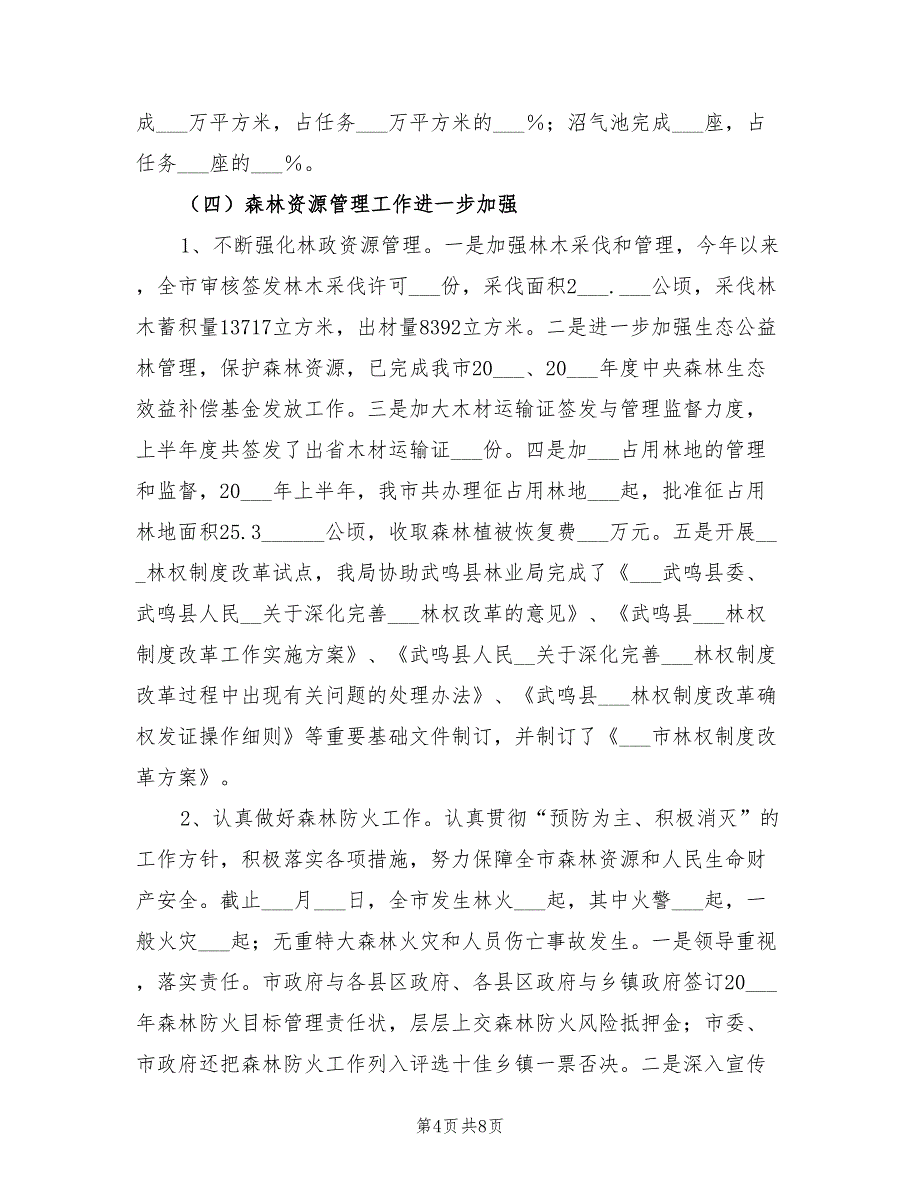 成___万平方米，占任务___万平方米的___％；沼气池完成___座，占
任务___座的___％。
（四）森林资源管理工作进一步加强
1、不断强化林政资源管理。一是加强林木采伐和管理，今年以来
，全市审核签发林木采伐许可___份，采伐面积2___.___公顷，采伐林
木蓄积量13717立方米，出材量8392立方米。二是进一步加强生态公益
林管理，保护森林资源，已完成我市20___、20___年度中央森林生态
效益补偿基金发放工作。三是加大木材运输证签发与管理监督力度，
上半年度共签发了出省木材运输证___份。四是加___占用林地的管理
和监督，20___年上半年，我市共办理征占用林地___起，批准征占用
林地面积25.3______公顷，收取森林植被恢复费___万元。五是开展__
_林权制度改革试点，我局协助武鸣县林业局完成了《___武鸣县委、
武鸣县人民__关于深化完善___林权改革的意见》、《武鸣县___林权
制度改革工作实施方案》、《武鸣县人民__关于深化完善___林权制度
改革过程中出现有关问题的处理办法》、《武鸣县___林权制度改革确
权发证操作细则》等重要基础文件制订，并制订了《___市林权制度改
革方案》。
2、认真做好森林防火工作。认真贯彻“预防为主、积极消灭”的
工作方针，积极落实各项措施，努力保障全市森林资源和人民生命财
产安全。截止___月___日，全市发生林火___起，其中火警___起，一
般火灾___起；无重特大森林火灾和人员伤亡事故发生。一是领导重视
，落实责任。市政府与各县区政府、各县区政府与乡镇政府签订20___
年森林防火目标管理责任状，层层上交森林防火风险抵押金；市委、
市政府还把森林防火工作列入评选十佳乡镇一票否决。二是深入宣传
第4页共8页